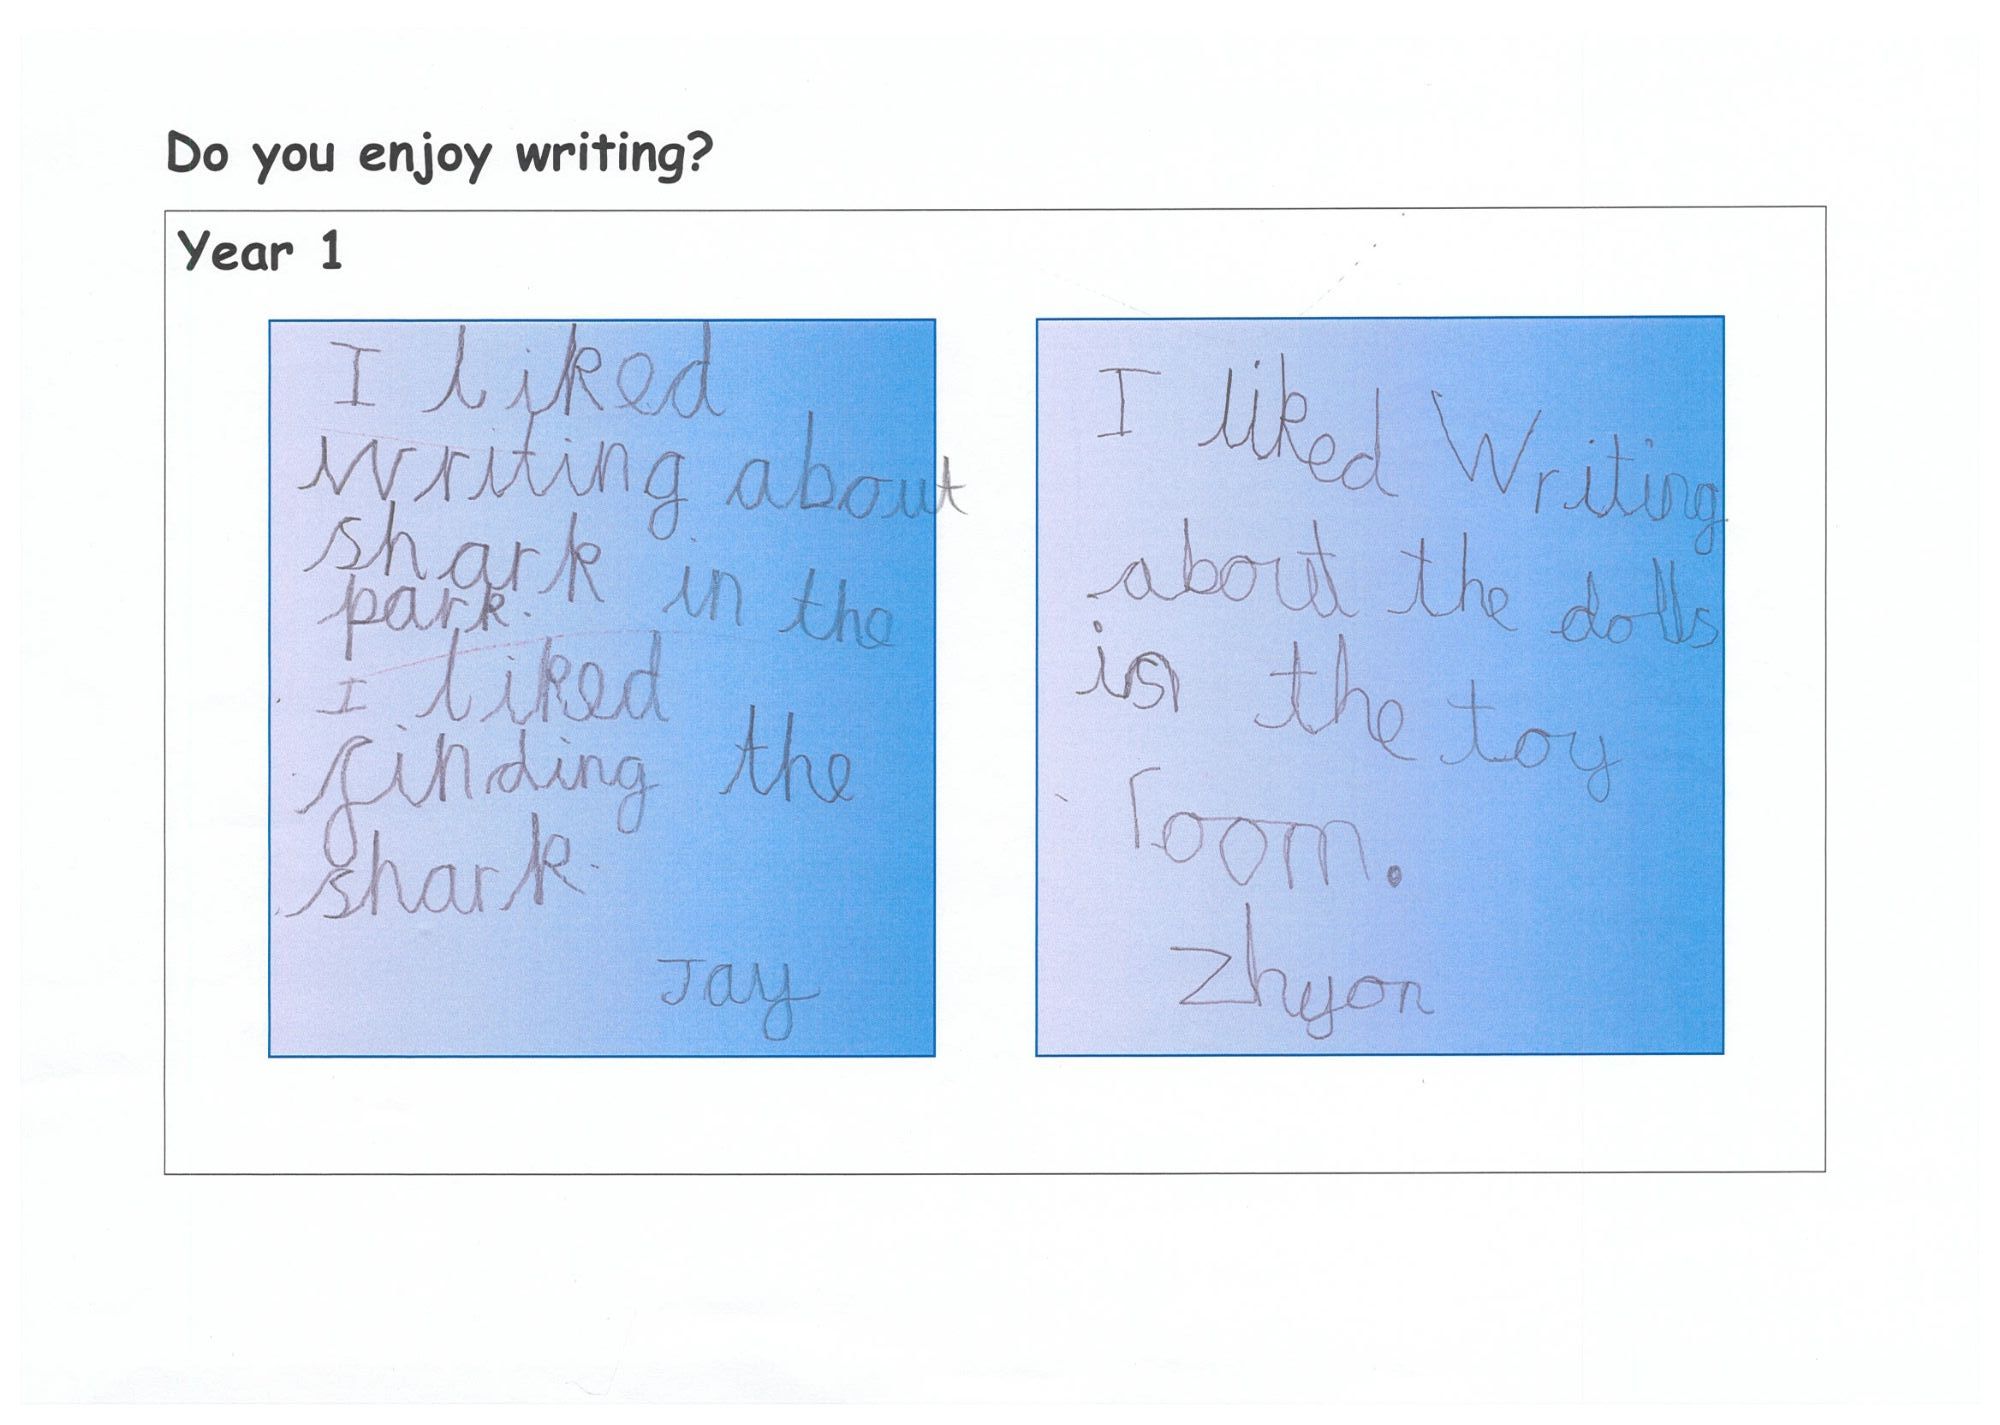 Do you enjoy writing?
Year 1
I liked
writing about
shark in the
park.
I liked
finding the
shark.
Jay
I liked Writing
about the dolls
in the toy
room.
Zhyon